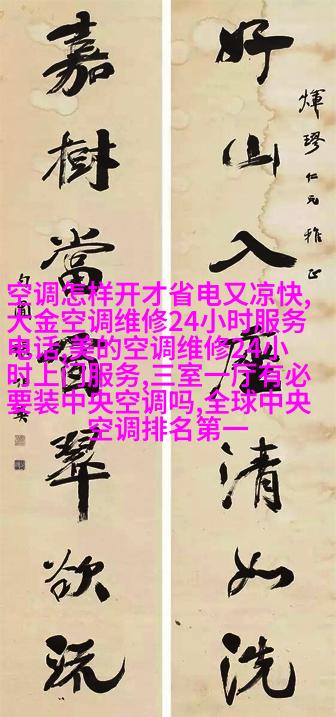 煇璆仁兄雅正
好山入座清如洗
嘉樹當窗翠欲流
空调怎样开才省电又凉快,
大金空调维修24小时服务
电话,美的空调维修24小
时上门服务,三室一厅有必
要装中央空调吗,全球中央
空调排名第一